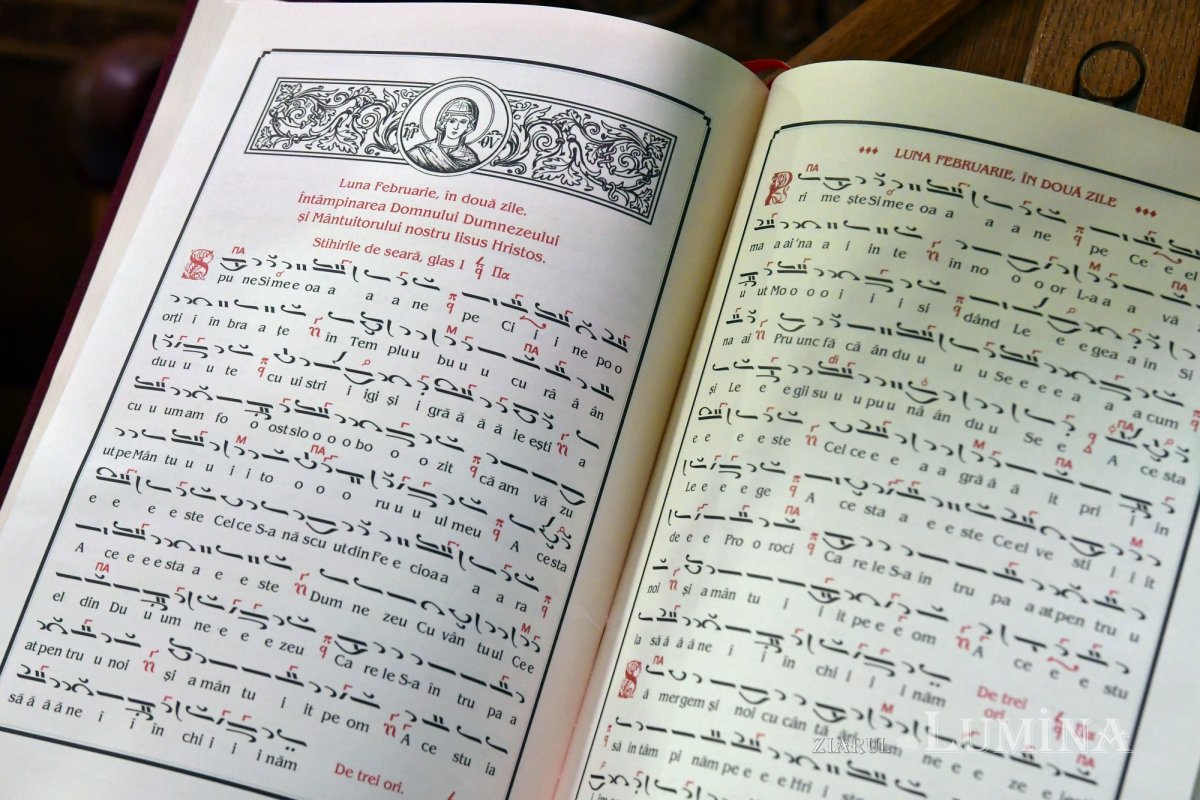 Luna Februarie, în două zile.
Întâmpinarea Domnului Dumnezeului
și Mântuitorului nostru Iisus Hristos.
Stihirile de seară, glas I Πα
S pu ne Si me e oa a a a ne pe Ci i i ne po o
orți i în bra a țe în Tem plu u bu u u cu ră â ân
du u u u te cu ui stri i igi și i gră ă ă ă ie ești a
cu u um am fo o ost slo o o o bo o o zit că am vă zu
ut pe Mân tu u u i i to o o o ru u u ul meu A ces ta
e e e e ste Cel ce S-a nă scu ut din Fe e cioa a a a ra
A ce e e sta a e e ste Dum ne zeu Cu vân tu ul Ce e
el din Du u um ne e e e zeu Ca re le S-a în tru pa a
at pen tru u noi și a mân tu i it pe om A ce stu ia
să ă ă ă ne i i în chi i i i năm
De trei ori.
LUNA FEBRUARIE, ÎN DOUĂ ZILE
P ri me ște Si me e oa a a a ne pe Ce e el
ma a ai 'na a i în te în no o o or L-a a a vă
u ut Mo o o o i i i si dând Le e e gea a în Si
na ai Pru unc fă câ ân du u u u Se e e e a a a cum
și Le e e gii su u u pu u nâ ân du u Se e A ce sta
e e e e ste Cel ce e e a a gră ă ă it pri i în
Le e e e ge A ce sta a e e ste Ce el ve sti i i it
de e e Pro o roci Ca re le S-a în tru pa a at pen tru u
noi și a mân tu i i it pe e e om A ce e e stu
ia să ă ă ă ne i i în chi i i i năm De trei
ori. Πα
S ă mergem și noi cu cân tă ări
să în tâm pi năm pe e e e Hri s
ZIARUL LUMINA